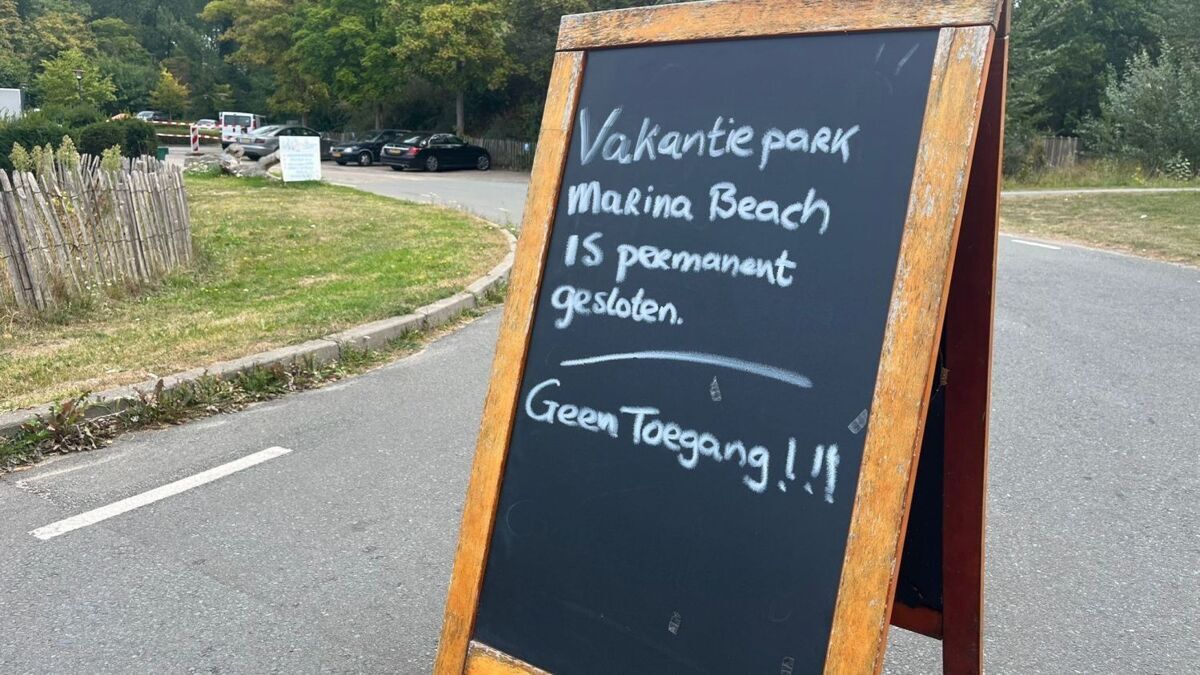 Vakantiepark
Marina Beach
is permanent
gesloten.
Geen Toegang!!!